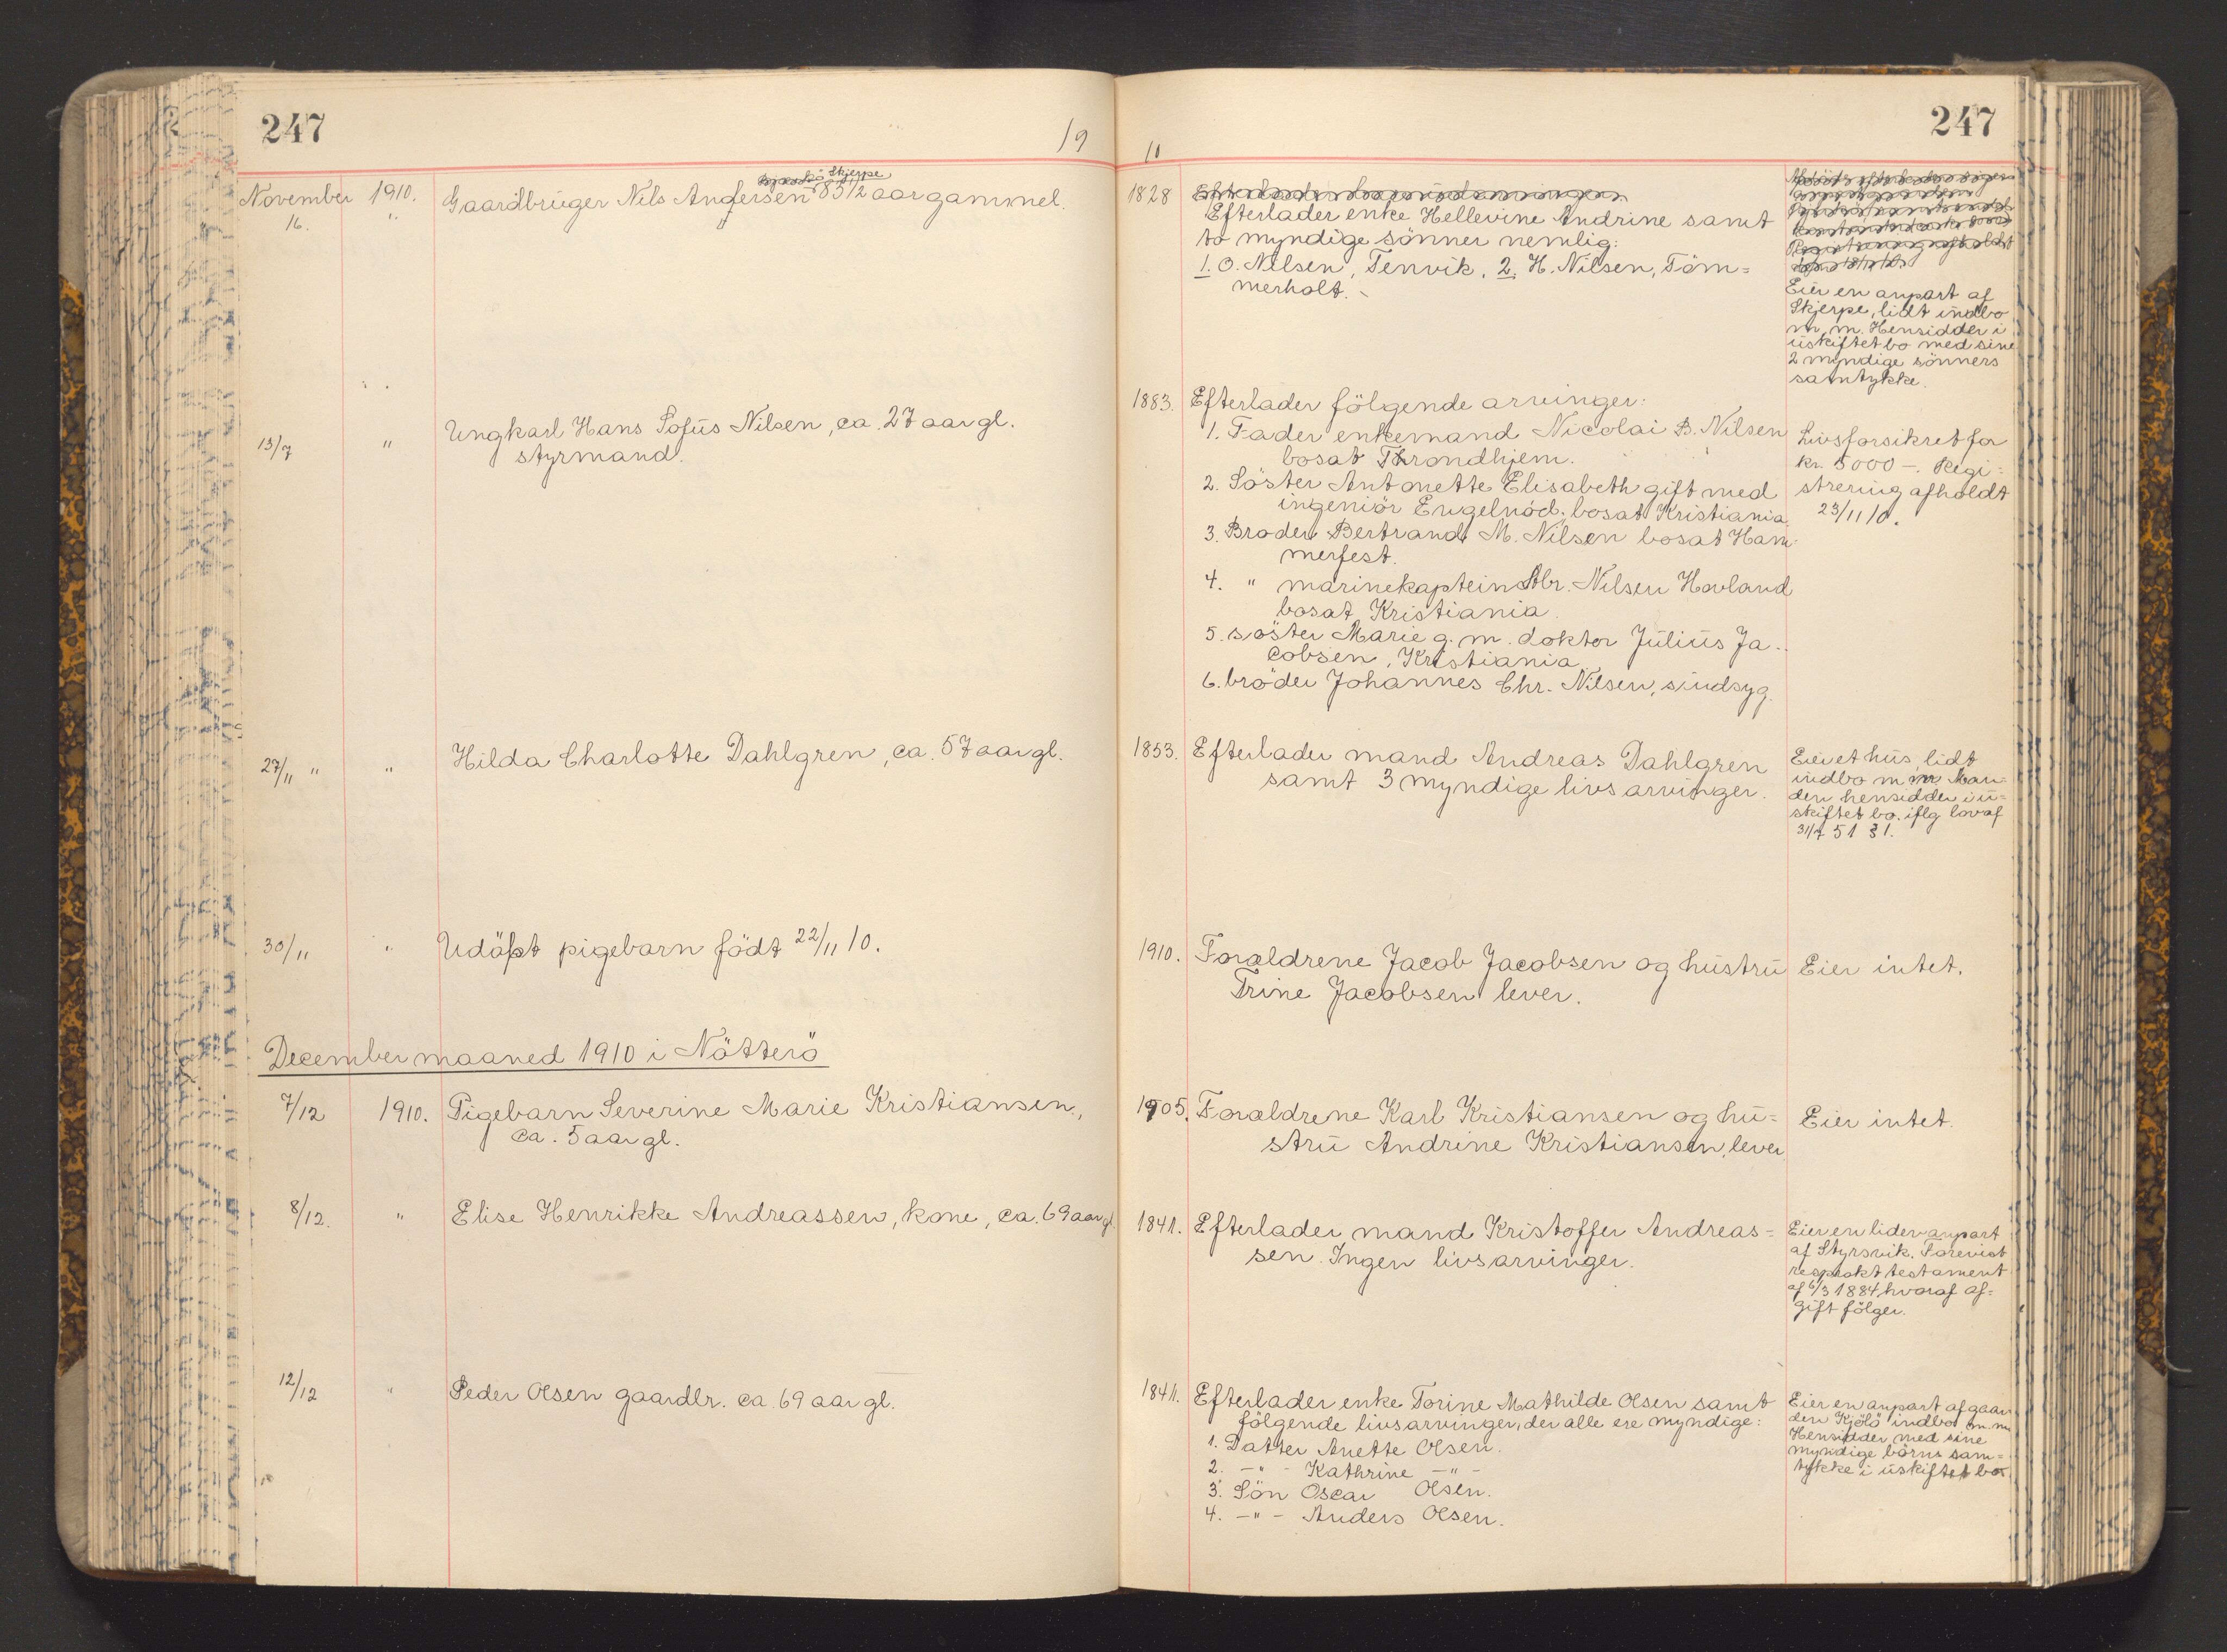 247
19
November 1910. Gaardbruger Nils Andersen Skjerpe 83 1/2 aar gammel.
16. "
13/7 " Ungkarl Hans Sofus Nilsen, ca. 27 aar gl.
styrmand.
27/11 " " Hilda Charlotte Dahlgren, ca. 57 aar gl.
30/11 " Udöpt pigebarn födt 22/11 10.
December maaned 1910 i Nötterö
7/12 1910. Pigebarn Severine Marie Kristiansen,
ca. 5 aar gl.
8/12. " Elise Henrikke Andreassen, kone, ca. 69 aar gl.
12/12 " Peder Olsen gaardbr. ca. 69 aar gl.
247
10
1828
Efterlader enke Hellevine Andrine samt
to myndige sönner nemlig:
1. O. Nilsen, Tenvik, 2. H. Nilsen, Töm=
merholt.
Eier en anpart af
Skjerpe, lidt indbo
m. m. Hensidder i
uskiftet bo med sine
2 myndige sönners
samtykke.
1883. Efterlader fölgende arvinger:
1. Fader enkemand Nicolai B. Nilsen
bosat Throndhjem.
2. Söster Antonette Elisabeth gift med
ingeniör Engelnod. bosat Kristiania.
3. Broder Bertrand M. Nilsen bosat Ham-
merfest.
4. " marinekaptein Abr. Nilsen Hovland
bosat Kristiania.
5. söster Marie g. m. doktor Julius Ja-
cobsen, Kristiania.
6. broder Johannes Chr. Nilsen, sindsyg.
Livsforsikret for
kr. 5000 -. Regi=
strering afholdt
23/11 10.
1853. Efterlader mand Andreas Dahlgren
samt 3 myndige livsarvinger.
Eier et hus, lidt
indbo m m. Man=
den hensidder i u=
skiftet bo. iflg lov af
31/7 51 § 1.
1910. Forældrene Jacob Jacobsen og hustru
Trine Jacobsen lever.
Eier intet.
1905. Forældrene Karl Kristiansen og hu=
stru Andrine Kristiansen, lever
Eier intet.
1841. Efterlader mand Kristoffer Andreas=
sen. Ingen livsarvinger.
Eier en liden anpart
af Styrsvik. Forevist
testament
af 6/3 1884 hvoraf af=
gift fölger.
1841. Efterlader enke Torine Mathilde Olsen samt
fölgende livsarvinger, der alle ere myndige:
1. Datter Anette Olsen.
2. - " - Kathrine - " -
3. Sön Oscar Olsen.
4. - " - Anders Olsen.
Eier en anpart af gaar
den Kjölö indbo m. m
Hensidder med sine
myndige börns sam=
tykke i uskiftet bo.